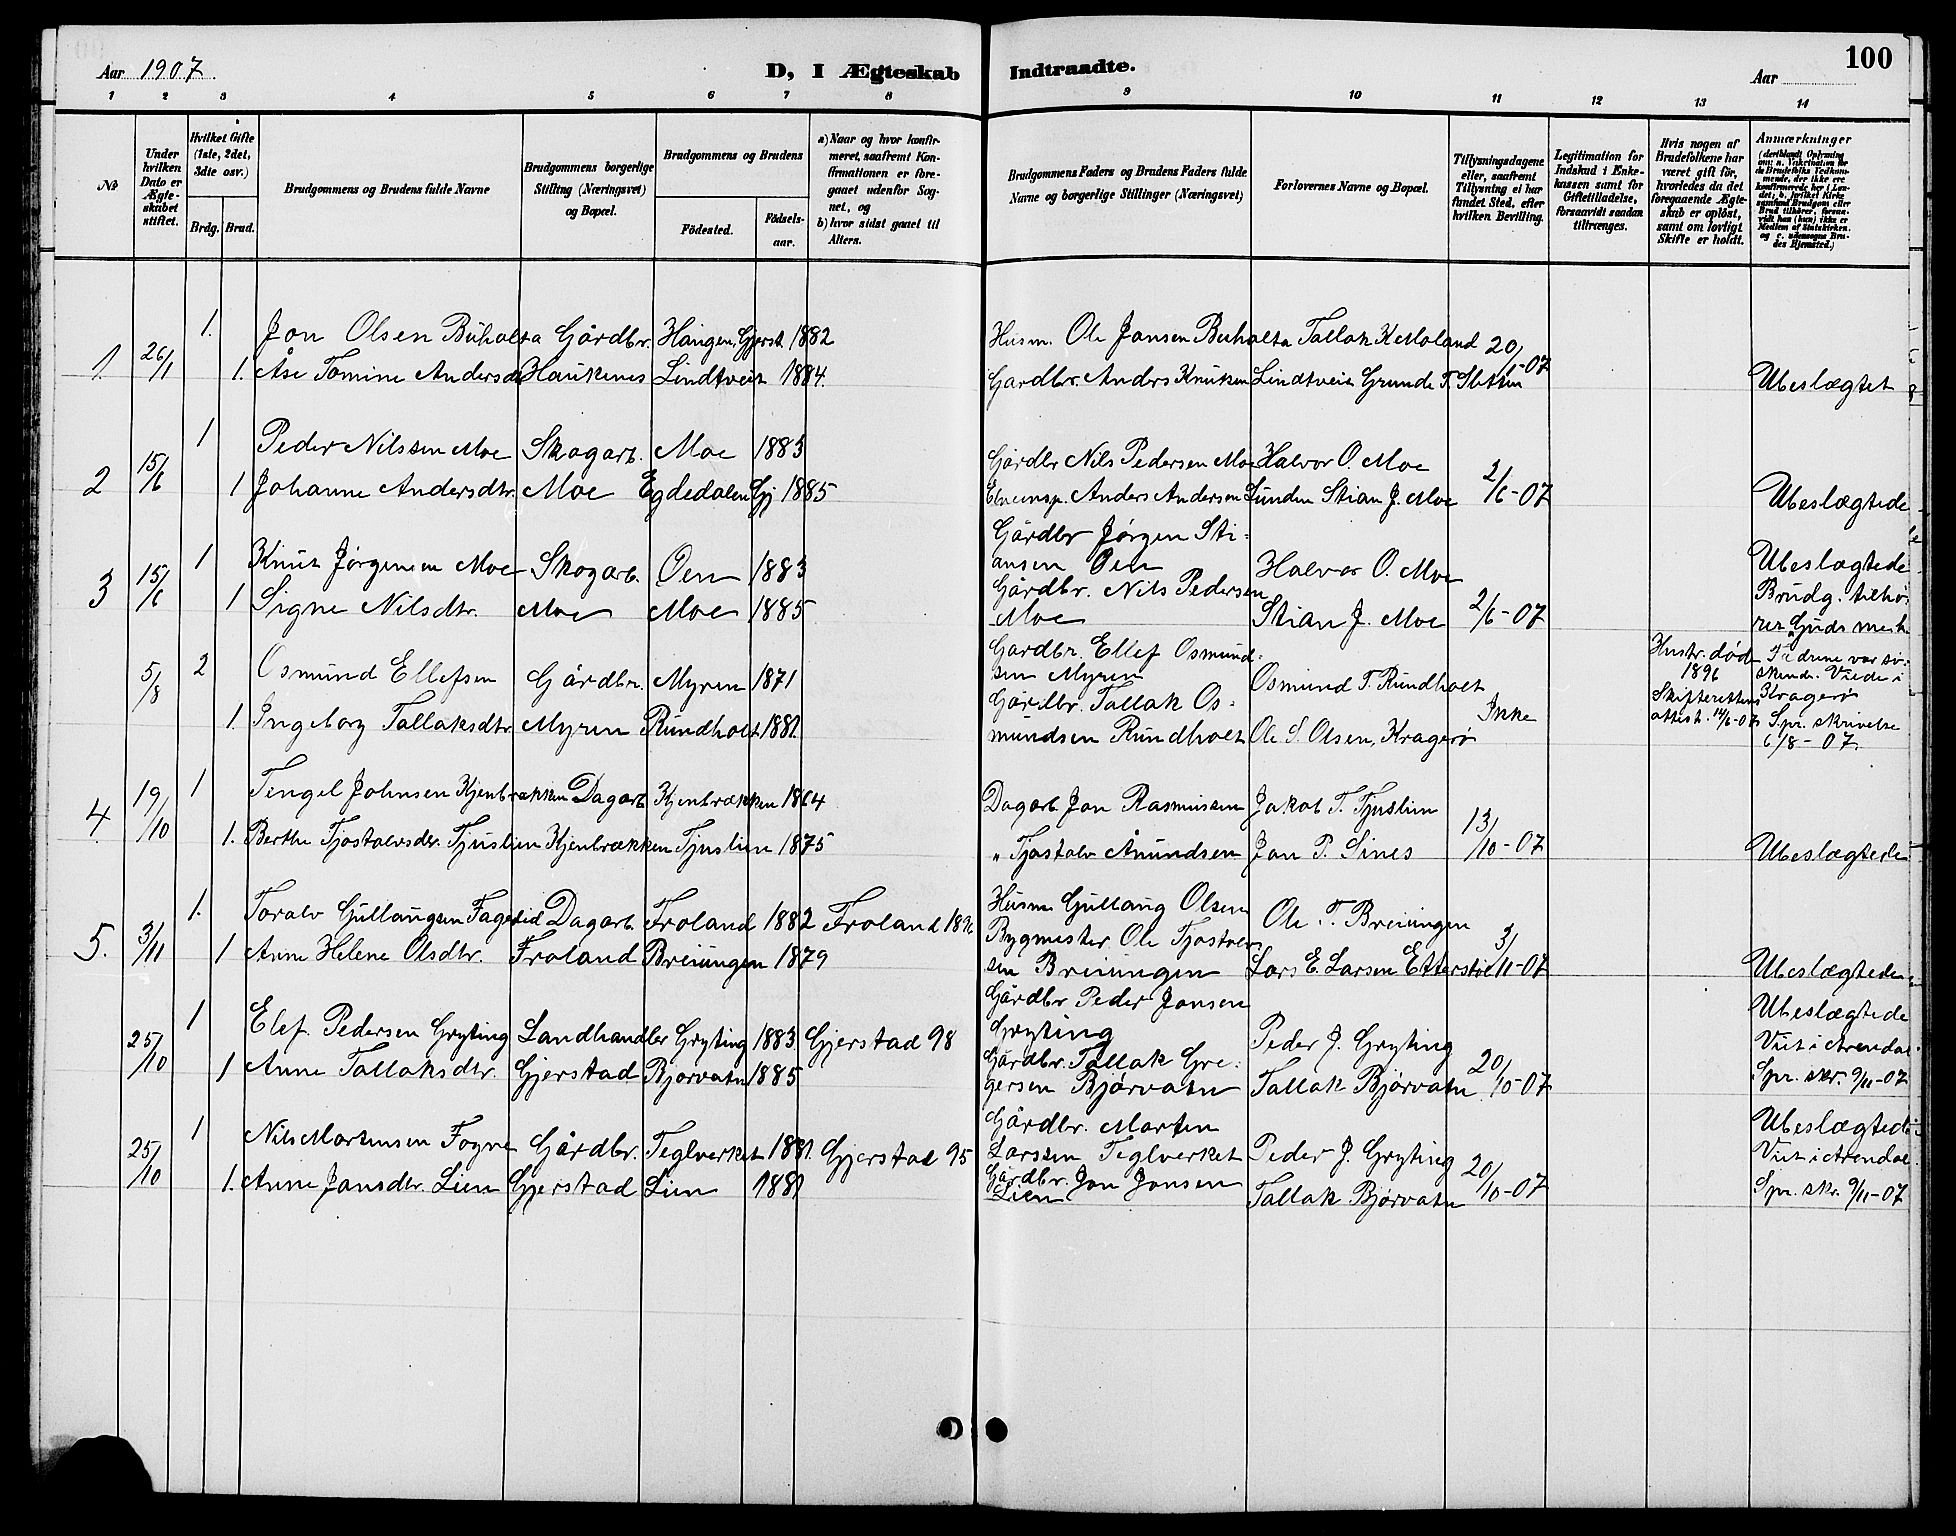 Aar 1907.
D, I Ægteskab Indtraadte.
100
Aar
1 2 3 4 5 6 7 8 9 10 11 12 13 14
№
Under hvilken Dato er Ægteskabet stiftet.
Hvilket Gifte (1ste, 2det, 3die osv.)
Brdg. Brud.
Brudgommens og Brudens fulde Navne
Brudgommens borgerlige Stilling (Næringsvei) og Bopæl.
Brudgommens og Brudens
Födested.
Födselsaar.
a) Naar og hvor konfirmeret, saafremt Konfirmationen er foregaaet udenfor Sognet, og
b) hvor sidst gaaet til Alters.
Brudgommens Faders og Brudens Faders fulde Navne og borgerlige Stillinger (Næringsvei)
Forlovernes Navne og Bopæl.
Tillysningsdagene eller, saafremt Tillysning ei har fundet Sted, efter hvilken Bevilling.
Legitimation for Indskud i Enkekassen samt for Giftetilladelse, forsaavidt saadan tiltrænges.
Hvis nogen af Brudefolkene har været gift för, hvorledes da det foregaaende Ægteskab er oplöst, samt om lovligt Skifte er holdt.
Anmærkninger
1. Jon Olsen Buholta Gårdbr. Haugen, Gjerst. 1882 Husm. Ole Jansen Buholta Tallak K Moland
1. 26/1 1. Åse Tomine Andersdr Haukenes Lindtveit 1884. Gardbr. Anders Knutsen Lindtveit Grunde T. Sletten 20/1-07 Ubeslægtet
1 Peder Nilssen Moe Skogarb. Moe 1883 Gårdbr Nils Pedersen Moe Halvor O. Moe
2 15/6 1 Johanne Andersdtr. Moe Egdedalen Gj 1885 Anders Andersen Lunden Stian J. Moe 2/6-07 Ubeslægtede
Gårdbr Jørgen Sti-
1 Knut Jørgensen Moe Skogarb. Øen 1883 ansen Øen Halvor O. Moe Ubeslægtede
3 15/6 Gårdbr. Nils Pedersen Brudg. tilhø-
1 Signe Nilsdtr. Moe Moe 1885 Moe Stian J. Moe 2/6-07 rer Guds
Gardbr. Ellef Osmund- Hustr. død Fædrene var sø-
5/8 2 Osmund Ellefsen Gårdbr. Myren 1871 sen Myren Osmund T. Rundholt 1896 skende. Viede i
Gårdbr. Tallak Os- Skifterettens Kragerø
1. Ingeborg Tallaksdtr Myren Rundholt 1881. mundsen Rundholt Ole S. Olsen, Kragerø Ikke attest. 14/6-07 Spr. skrivelse
6/8-07.
19/10 1 Tengel Johnsen Kjenbrækken Dagarb. Kjenbrækken 1864 Dagarb. Jon Rasmussen Jakob T. Tjuslien
4. 1. Berthe Tjostolvsdr. Tjuslien Kjenbrækken Tjuslien 1875 " Tjostolv Anundsen Jon P. Sines 13/10-07 Ubeslægtede
1. Toralv Gullaugsen Fagerlid Dagarb. Froland 1882 Froland Husm Gullaug Olsen Ole T. Breiungen
5. 3/11 1 Anne Helene Olsdtr. Froland Breiungen 1879 Bygmester Ole Tjostolv-
sen Breiungen Lars E. Larsen Etterstøl 3/11-07 Ubeslægtede
Gårdbr Peder Jonsen Ubeslægtede
1 Elef Pedersen Gryting Landhandler Gryting 1883 Gjerstad 98 Gryting Peder J. Gryting Viet i Arendal.
25/10 1 Anne Tallaksdtr. Gjerstad Bjorvatn 1885 Gårdbr. Tallak Gre-
gersen Bjørvatn Tallak Bjørvatn 20/10-07 Spr. skr. 9/11-07
Gårdbr. Morten Ubeslægtede
1 Nils Mortensen Fogne Gårdbr. Teglverket 1881. Gjerstad 95 Larssen Teglverket Peder J. Gryting Viet i Arendal.
25/10 1. Anne Jansdtr. Lien Gjerstad Lien 1881 Gårdbr. Jon Jonsen
Lien Tallak Bjørvatn 20/10-07 Spr. skr. 9/11-07